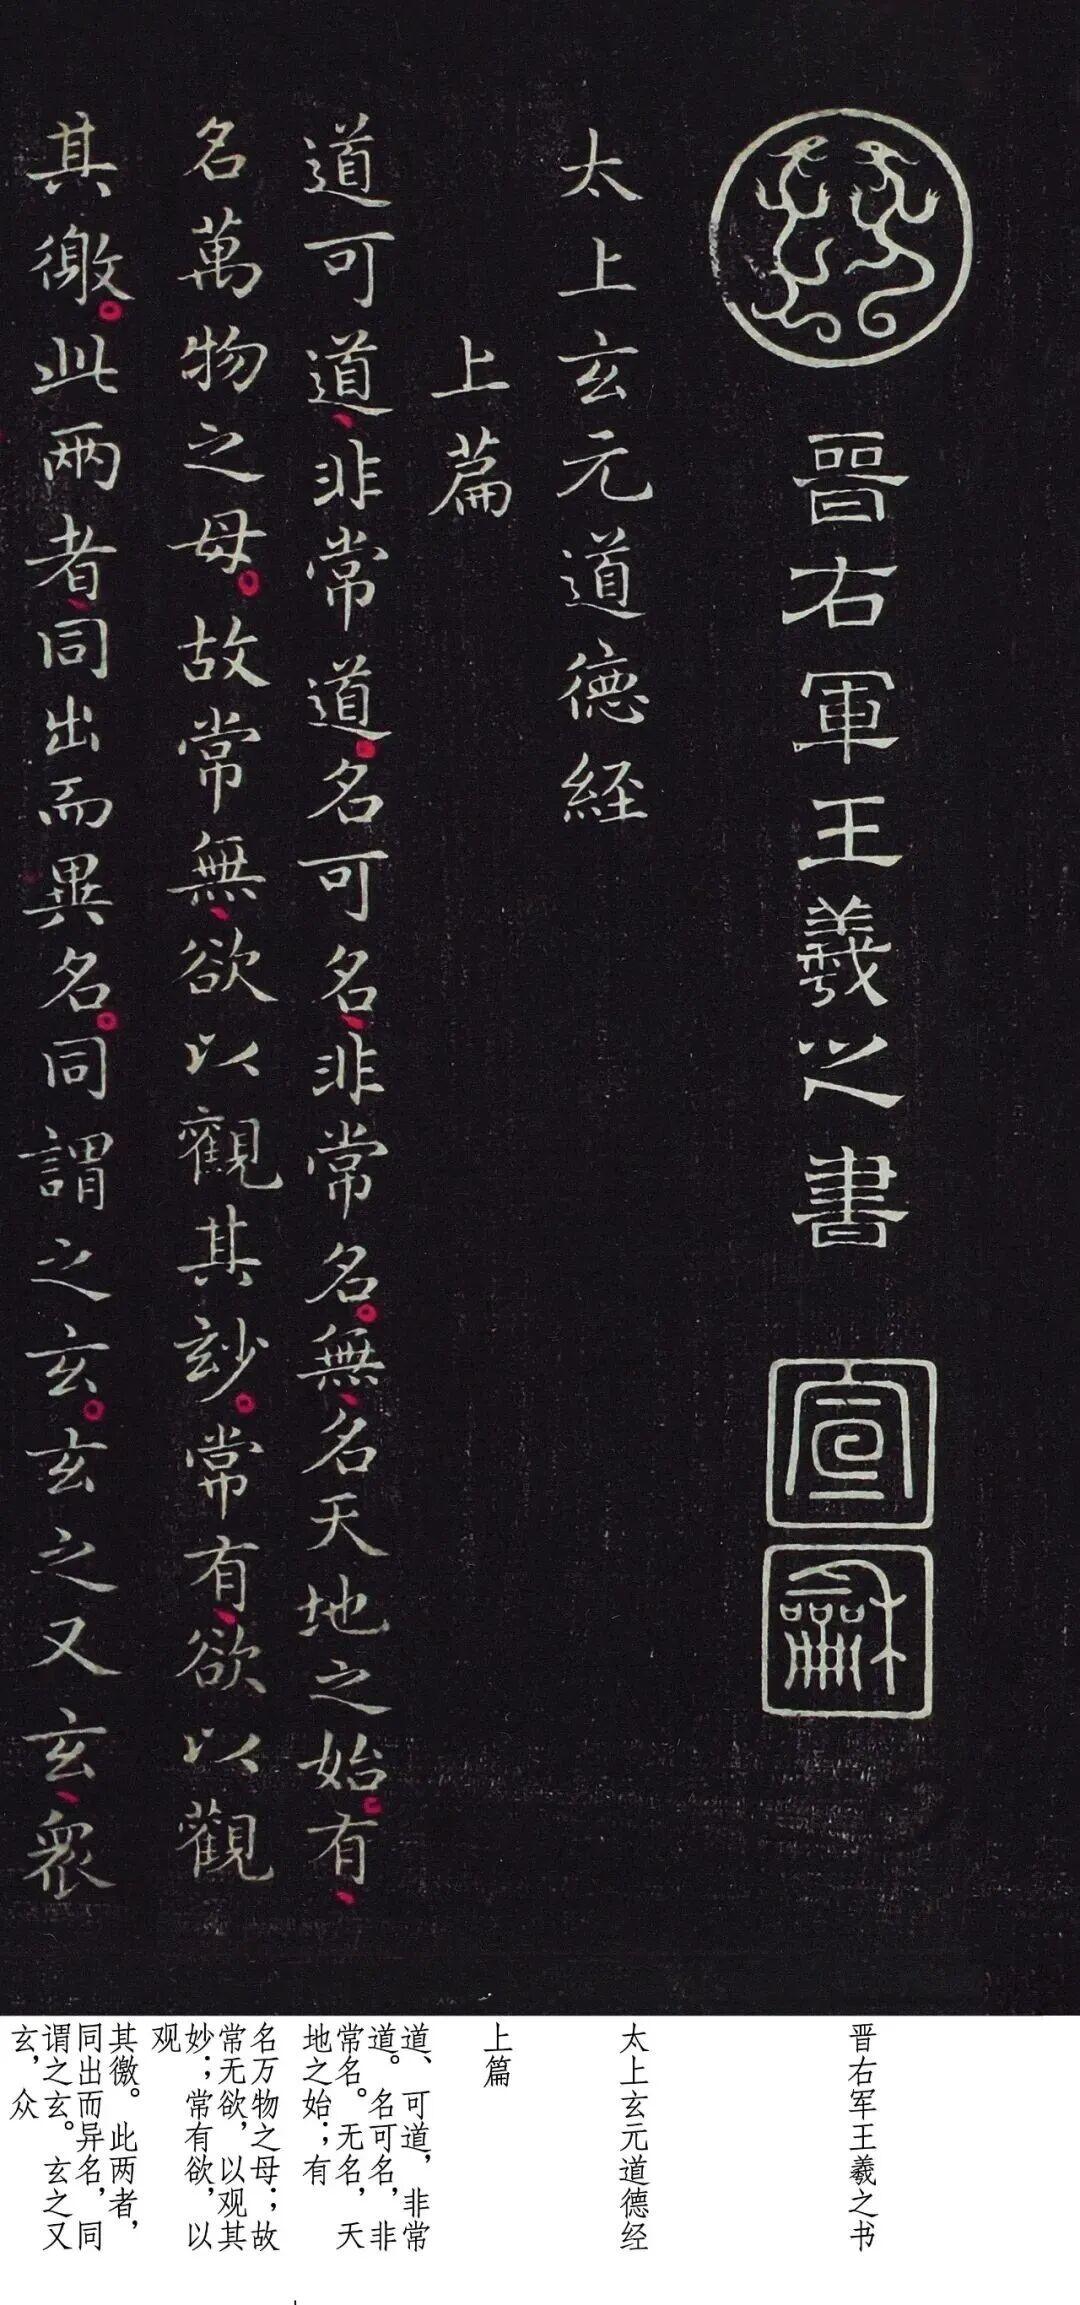 晋右軍王羲之書
宣
龢
太上玄元道德経
上篇
道可道、非常道。名可名、非常名。無、名天地之始。有、
名萬物之母。故常無、欲以觀其玅。常有、欲以觀
其徼。此兩者、同出而異名。同謂之玄。玄之又玄、衆
晋右军王羲之书
太上玄元道德经
上篇
道、可道，非常
道。名可名，非
常名。无名，天
地之始；有
名万物之母；故
常无欲，以观其
妙；常有欲，以
观
其徼。此两者，
同出而异名，同
谓之玄。玄之又
玄，众